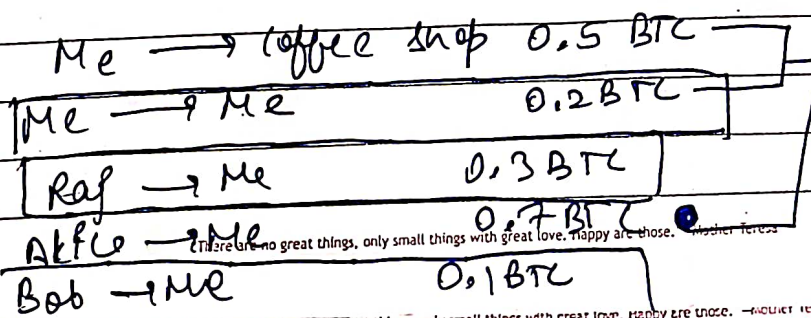 Me → Coffee shop 0.5 BTC
Me → Me 0.2 BTC
Raj → Me 0.3 BTC
→ Me 0.7 BTC
There are no great things, only small things with great love. Happy are those. —Mother Teresa
Bob → Me 0.1 BTC
small things with great love. Happy are those. —Mother Te